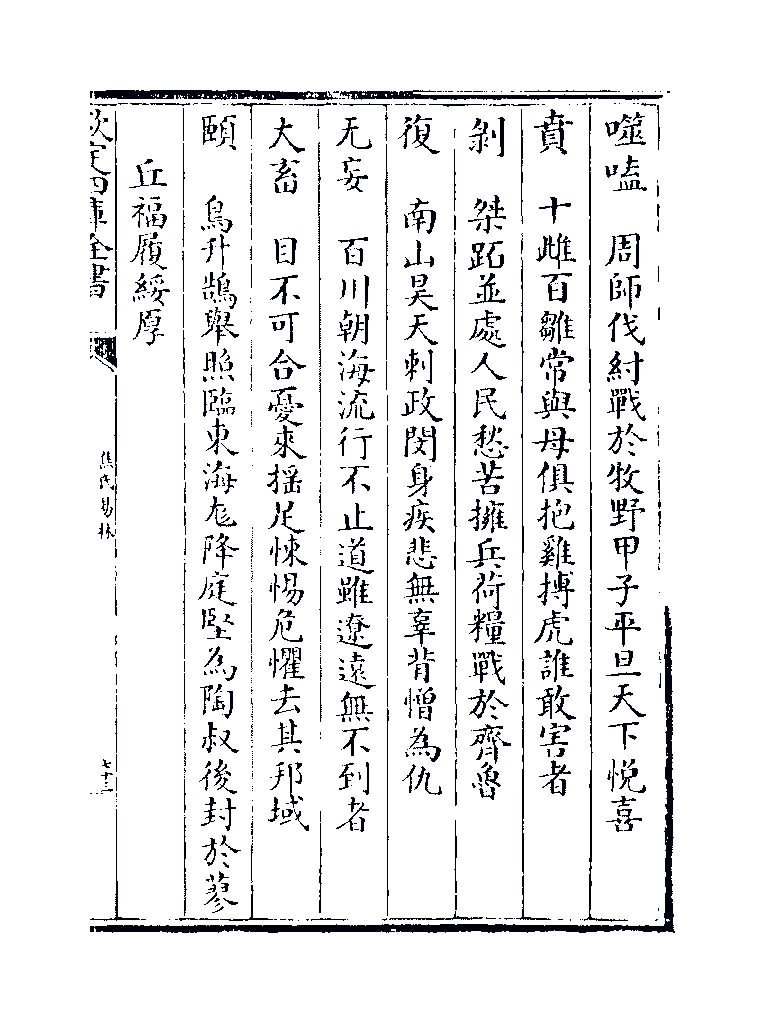 噬嗑　周師伐紂戰於牧野甲子平旦天下悦喜
賁　十雌百雛常與母俱抱雞搏虎誰敢害者
剝　桀跖並處人民愁苦擁兵荷糧戰於齊魯
復　南山昊天刺政閔身疾悲無辜背憎為仇
无妄　百川朝海流行不止道雖遼遠無不到者
大畜　目不可合憂來搖足悚惕危懼去其邦域
頤　鳥升鵠舉照臨東海尨降庭堅為陶叔後封於蓼
丘福履綏厚
欽定四庫全書
焦氏易林
七十三